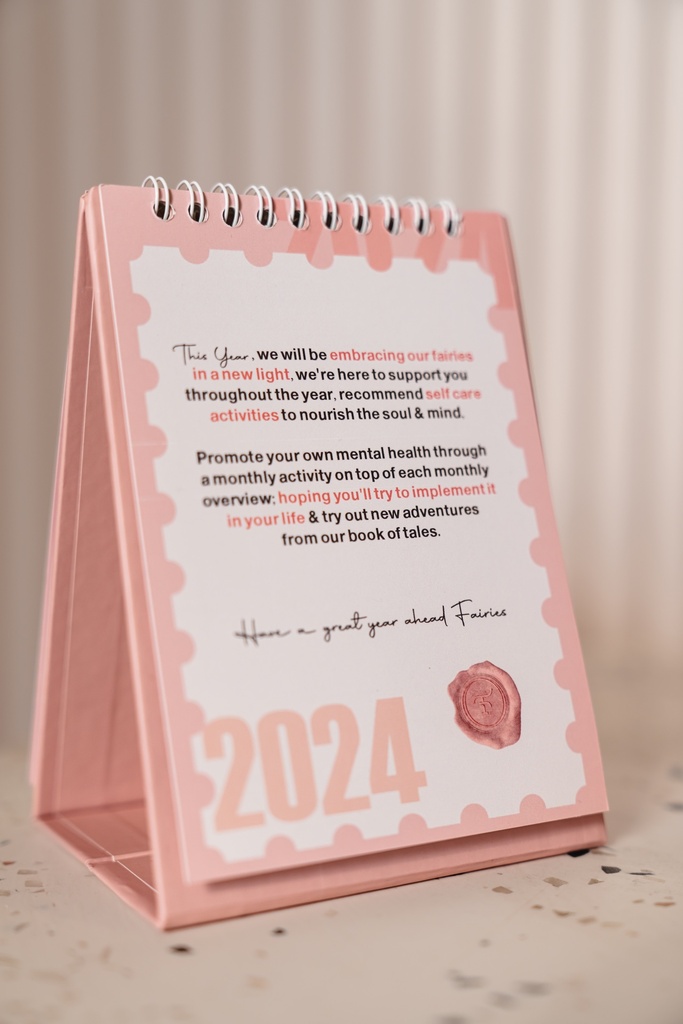 This Year, we will be embracing our fairies
in a new light, we're here to support you
throughout the year, recommend self care
activities to nourish the soul & mind.
Promote your own mental health through
a monthly activity on top of each monthly
overview; hoping you'll try to implement it
in your life & try out new adventures
from our book of tales.
Have a great year ahead Fairies
2024